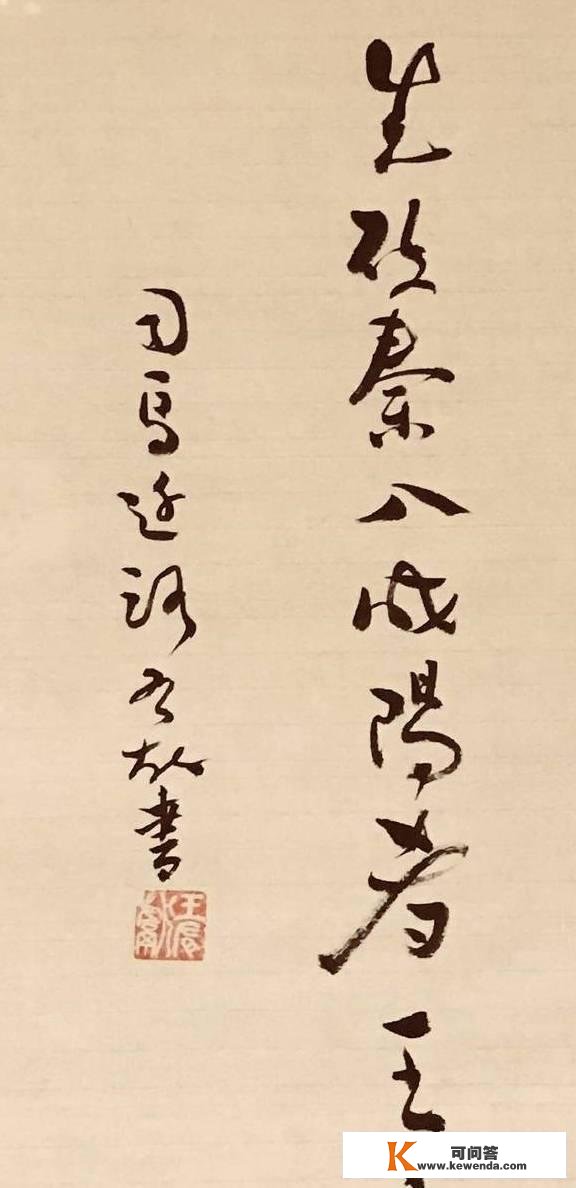 先破秦入咸陽者王
司馬遷語書
可问答
www.kewenda.com